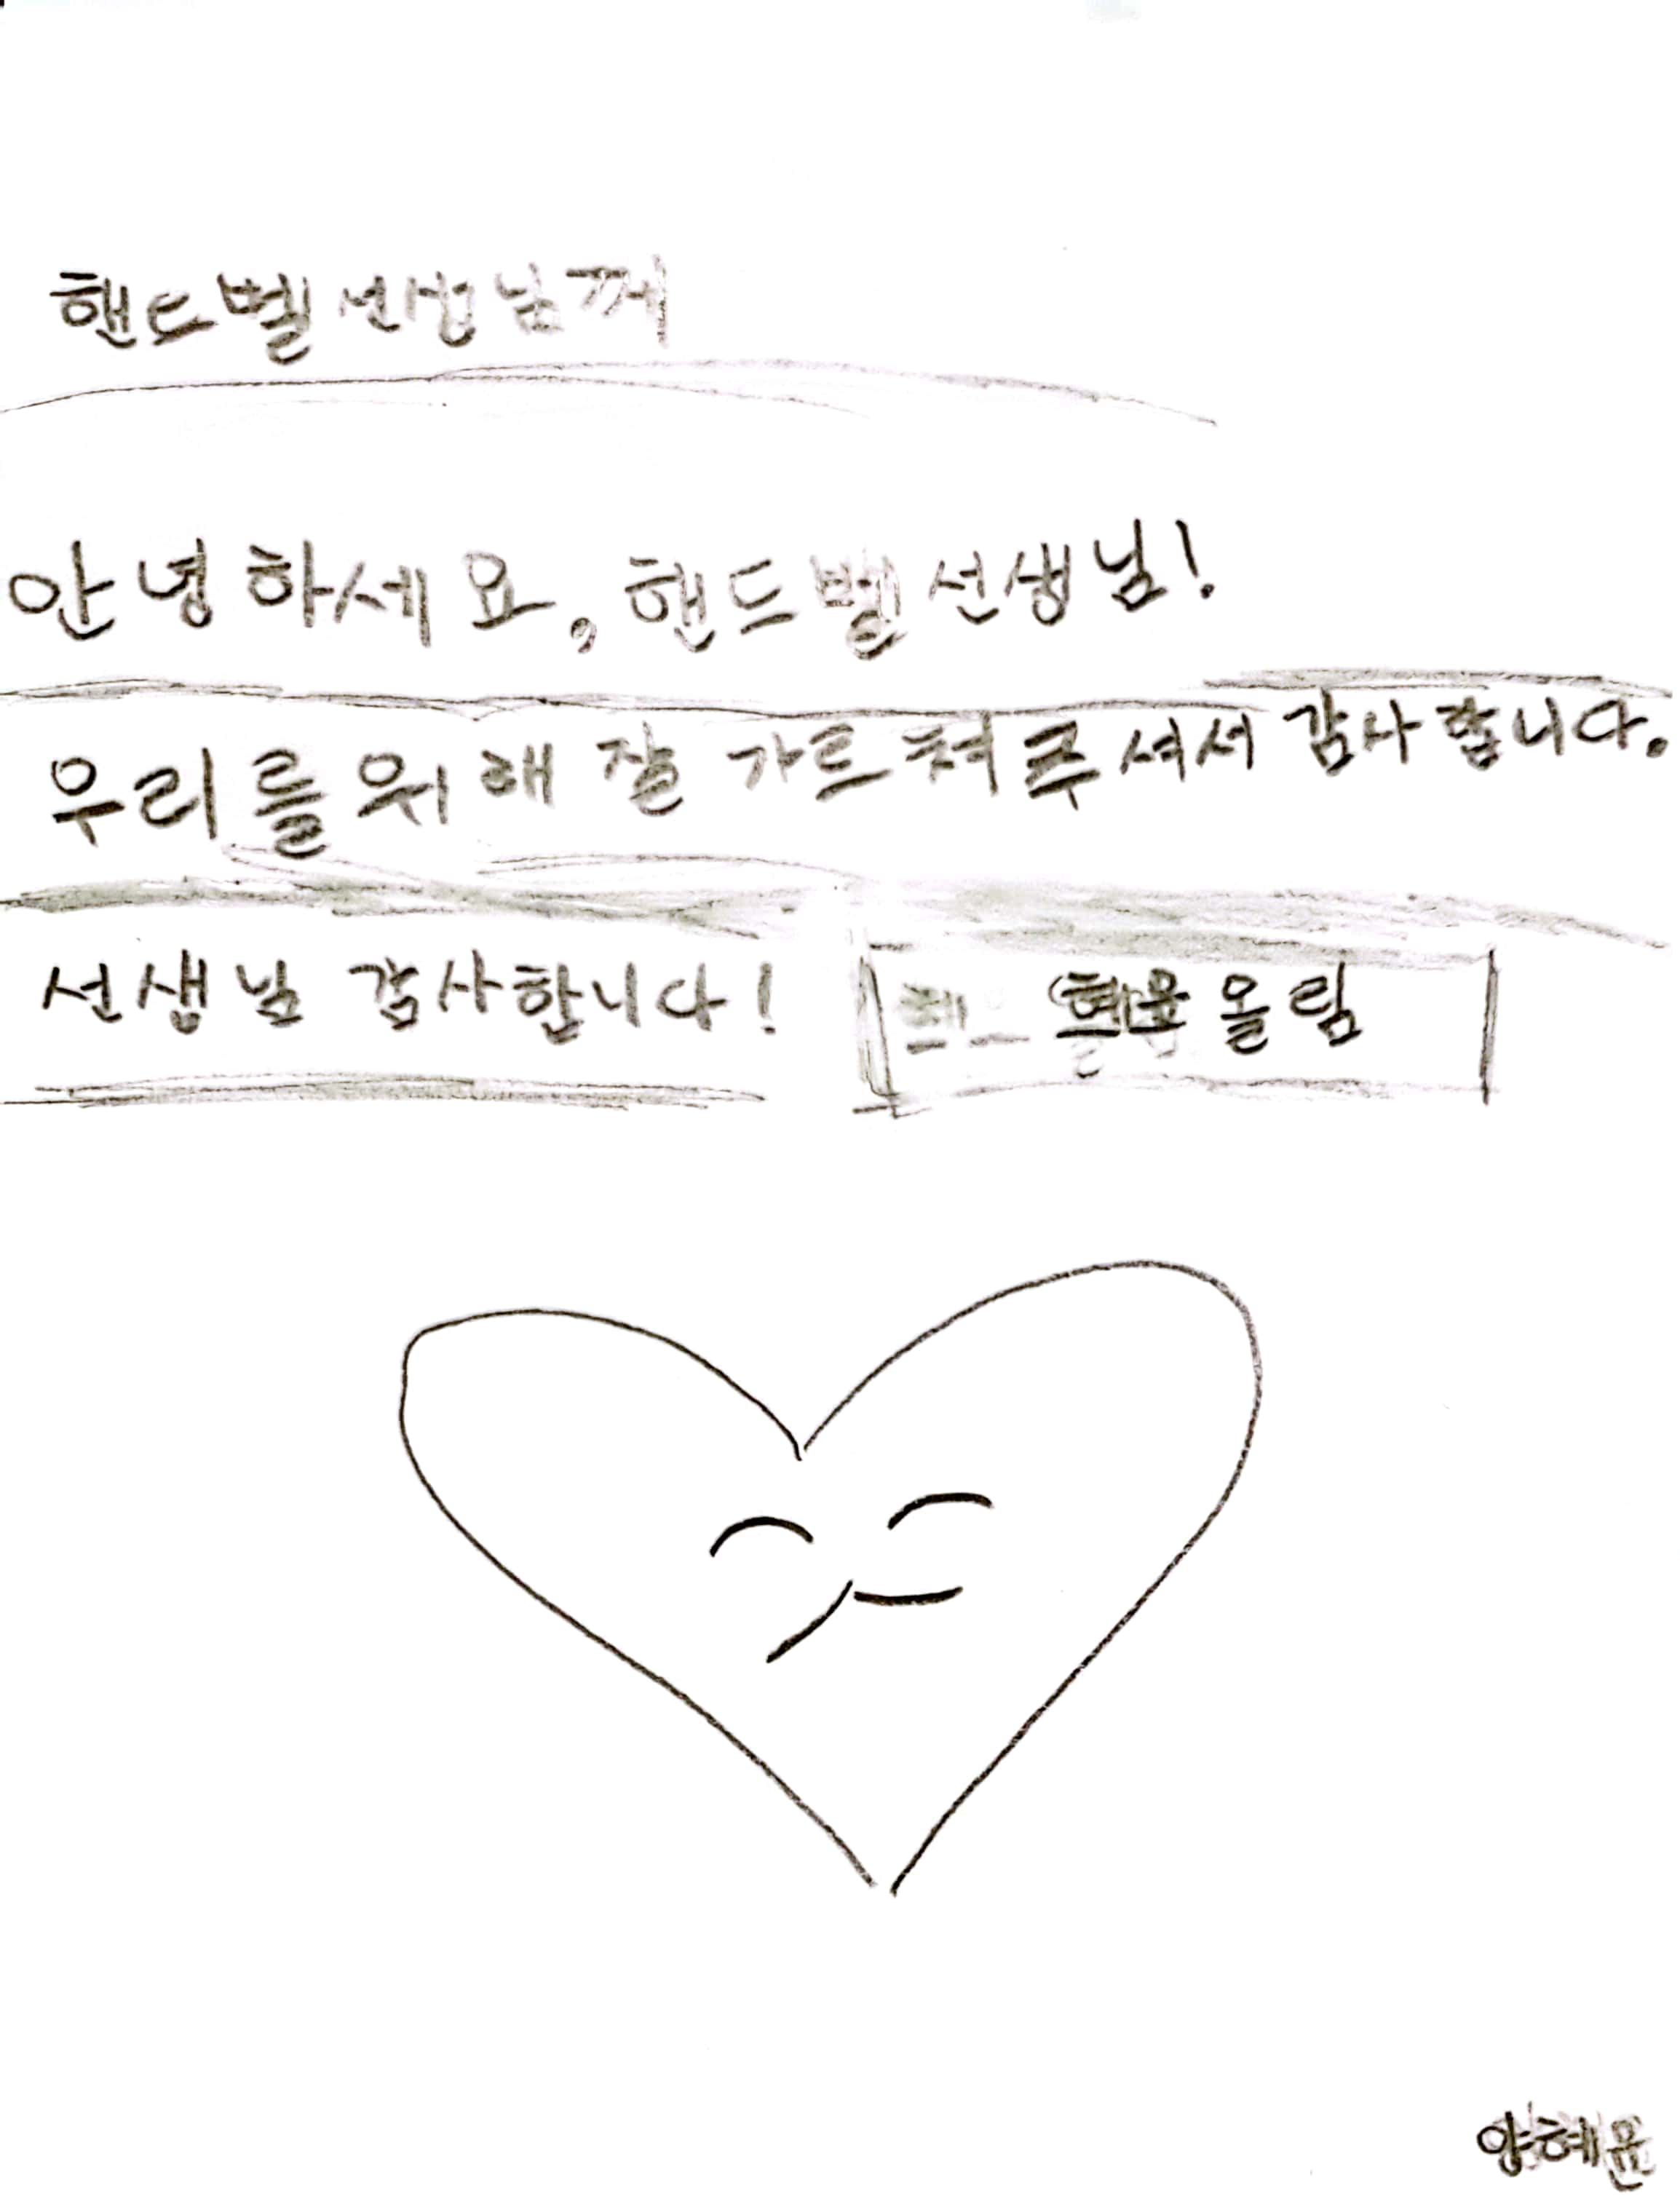 핸드벨 선생님께
안녕하세요, 핸드벨 선생님!
우리를 위해 잘 가르쳐 주셔서 감사합니다.
선생님 감사합니다! 혜윤 올림
양혜윤